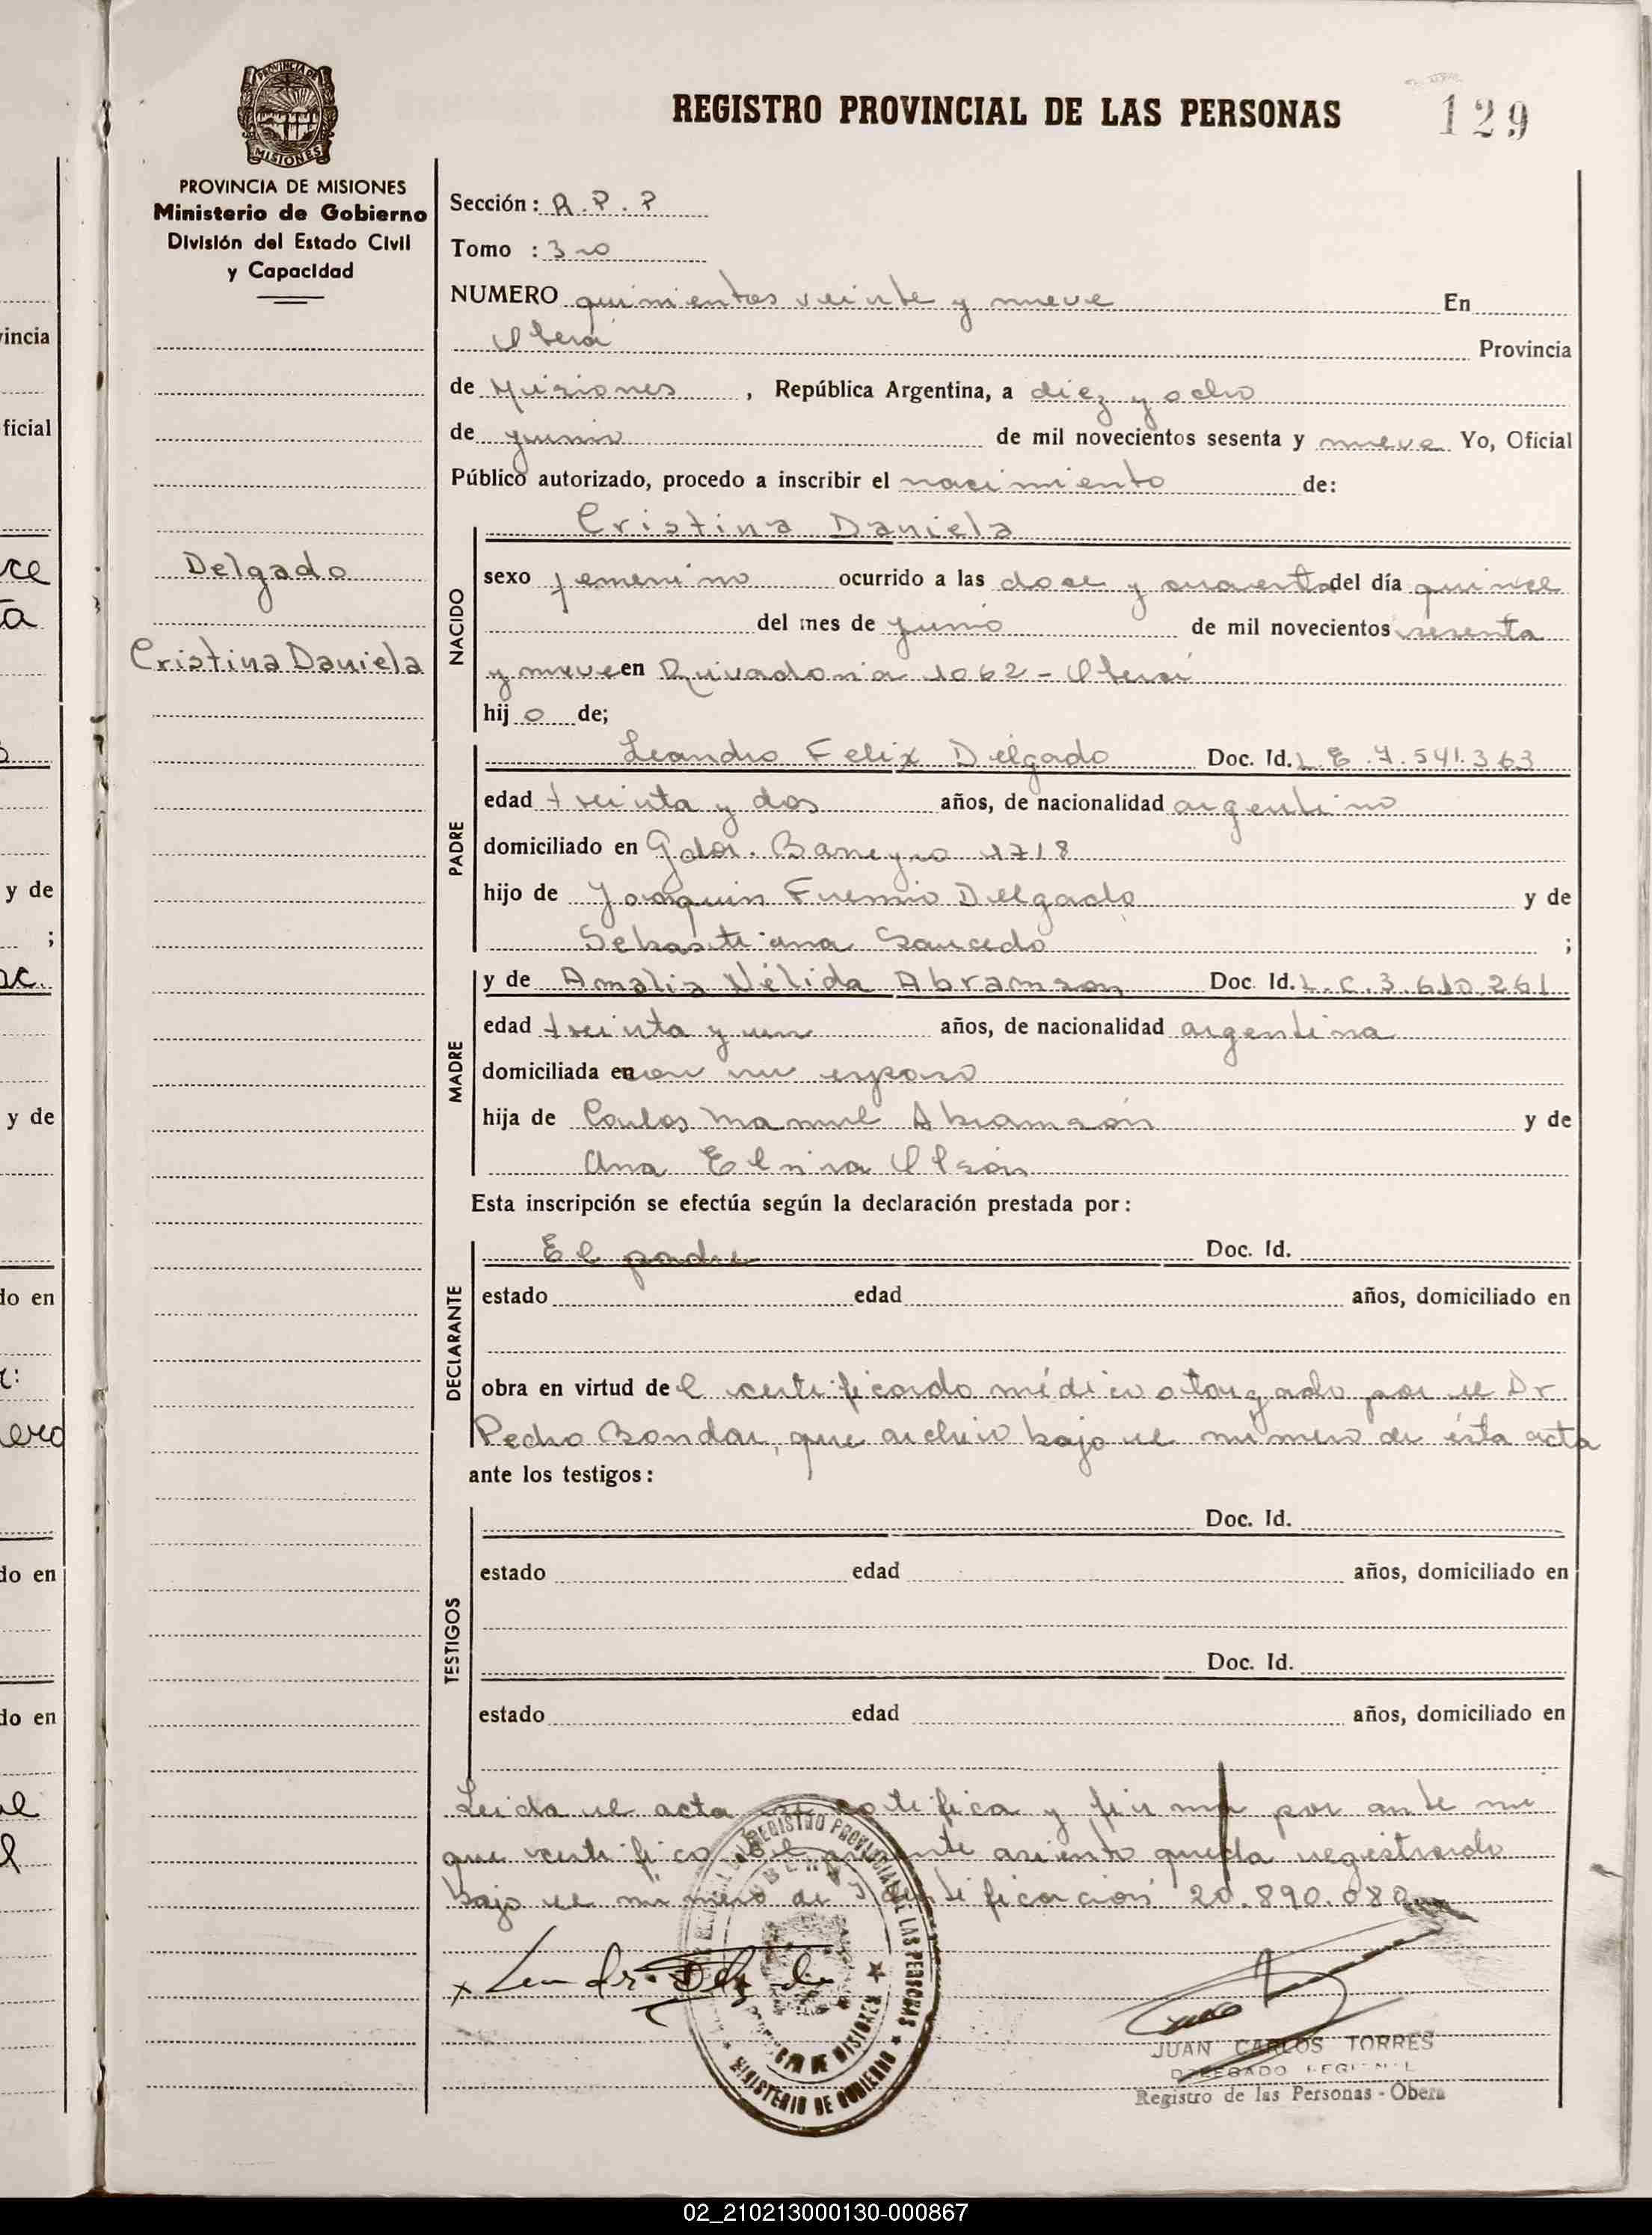 REGISTRO PROVINCIAL DE LAS PERSONAS
129
PROVINCIA DE MISIONES
PROVINCIA DE MISIONES
Ministerio de Gobierno
División del Estado Civil
y Capacidad
Sección: R.P.P
Tomo : 3ro
NUMERO quinientos veinte y nueve En
Oberá Provincia
de Misiones, República Argentina, a diez y ocho
de junio de mil novecientos sesenta y nueve Yo, Oficial
Público autorizado, procedo a inscribir el nacimiento de:
Cristina Daniela
Delgado
Cristina Daniela
NACIDO
sexo femenino ocurrido a las doce y cuarenta del día quince
del mes de junio de mil novecientos sesenta
y nueve en Rivadavia 1062 - Oberá
hijo de;
PADRE
Leandro Felix Delgado Doc. Id. L.E.7.541.363
edad treinta y dos años, de nacionalidad argentino
domiciliado en Gdor. Barreyro 1718
hijo de Joaquin Delgado y de
Sebastiana Saucedo ;
MADRE
y de Amalia Nélida Abramson Doc. Id. L.C.3.610.261
edad treinta y un años, de nacionalidad argentina
domiciliada en con su esposo
hija de Carlos Manuel Abramsón y de
Ana Elvira Olsón
Esta inscripción se efectúa según la declaración prestada por:
DECLARANTE
El padre Doc. Id.
estado edad años, domiciliado en
obra en virtud del certificado médico otorgado por el Dr
Pedro Bondar, que archivo bajo el numero de ésta acta
ante los testigos:
TESTIGOS
Doc. Id.
estado edad años, domiciliado en
Doc. Id.
estado edad años, domiciliado en
Leida el acta ratifica y firma por ante mi
que certifico el presente asiento queda registrado
bajo el numero de identificación 20.890.08
REGISTRO PROVINCIAL DE LAS PERSONAS
MINISTERIO DE GOBIERNO
JUAN CARLOS TORRES
DELEGADO REGIONAL
Registro de las Personas - Obera
vincia
ficial
y de
;
y de
do en
do en
do en
02_210213000130-000867